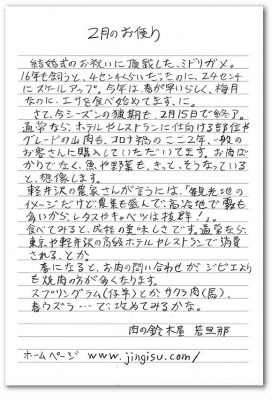 2月のお便り
結婚式のお祝いに頂戴した、ミドリガメ。
16年も飼うと、4センチくらいだったのに、24センチ
にスケールアップ。今年は春が早いらしく、梅月
なのに、エサを食べ始めてます、に。
さて、今シーズンの猟期も、2月15日で終了。
通常なら、ホテルやレストランに仕向ける部位や
グレードの山肉も、コロナ禍のここ2年、一般の
お客さんに購入していただいてます。お肉ば
かりでなく、魚や野菜も、きっと、そうなっている
と、想像します。
軽井沢の農家さんが言うには、「観光地の
イメージだけど農業も盛んで、高冷地で霧も
多いから、レタスやキャベツは抜群!」。
食べてみると、成程の美味しさです。通常なら、
東京や軽井沢の高級ホテルやレストランで消費
される、とか。
春になると、お肉の問い合わせが ジビエより
も焼肉の方が多くなります。
スプリングラム(仔羊)とか サクラ肉(馬)、
春ウズラ…で、攻めてみるかな。
肉の鈴木屋 若旦那
ホームページ www.jingisu.com/